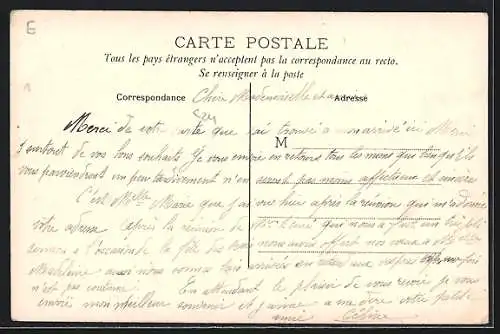 E
CARTE POSTALE
Tous les pays étrangers n'acceptent pas la correspondance au recto.
Se renseigner à la poste
Correspondance Chère Mademoiselle et Adresse
Merci de votre carte que j'ai trouvé à mon arrivée ici Merci
surtout de vos bons souhaits Je vous envoie en retour tous les miens que bien qu'ils
M
vous parviendront un peu tardivement n'en seront pas moins affectueux et sincères
C'est Melle Marie que j'ai vue hier après la réunion qui m'a donné
votre adresse Après la réunion de
l'occasion de la fête des Rois nous avons offert nos vœux à
Madeleine aussi nous sommes arrivées en retard aux vêpres
n'est pas coutume. En attendant le plaisir de vous revoir je vous
envoie mon meilleur souvenir et j'arrive à me dire votre petite
amie Céline